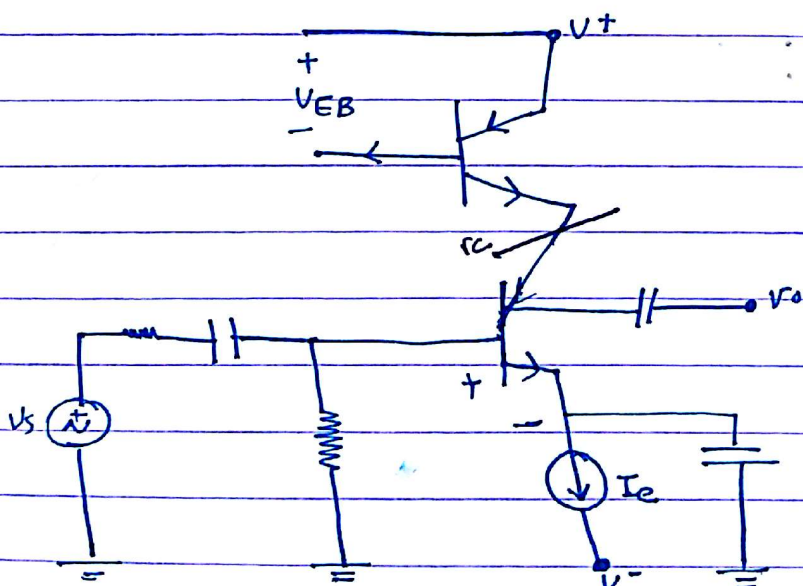 V+
+
VEB
-
rc
Vo
Vs
+
+
-
Ie
V-